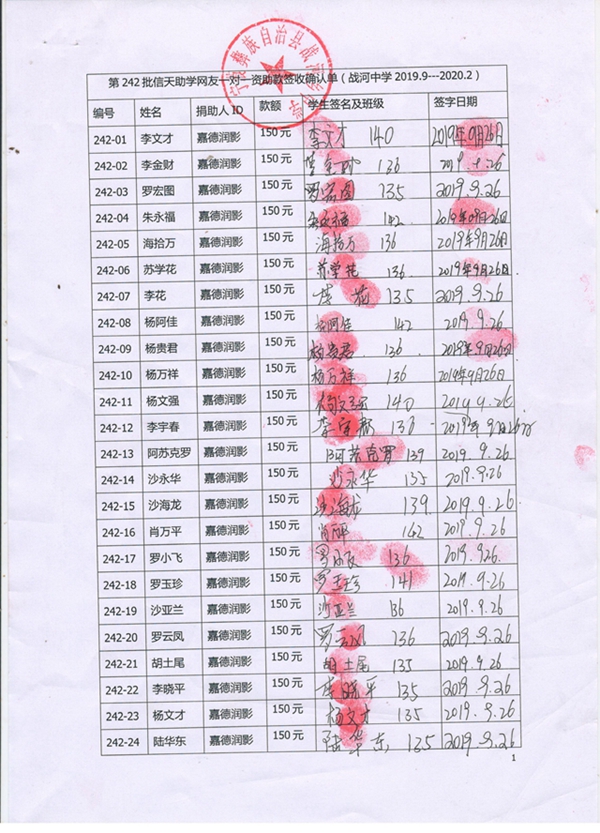 宁蒗彝族自治县战河中学
第 242 批信天助学网友一对一资助款签收确认单（战河中学 2019.9---2020.2）
编号 姓名 捐助人 ID 款额 学生签名及班级 签字日期
242-01 李文才 嘉德润影 150 元 李文才 140 2019年09月26日
242-02 李金财 嘉德润影 150 元 李金财 136 2019.9.26
242-03 罗宏图 嘉德润影 150 元 罗宏图 135 2019.9.26
242-04 朱永福 嘉德润影 150 元 朱永福 142 2019年09月26日
242-05 海拾万 嘉德润影 150 元 海拾万 136 2019年9月26日
242-06 苏学花 嘉德润影 150 元 苏学花 136. 2019年9月26日
242-07 李花 嘉德润影 150 元 李花 135 2019.9.26
242-08 杨阿佳 嘉德润影 150 元 杨阿佳 142 2019.9.26
242-09 杨贵君 嘉德润影 150 元 杨贵君. 136. 2019年9月26日
242-10 杨万祥 嘉德润影 150 元 杨万祥 136 2019年9月26日
242-11 杨文强 嘉德润影 150 元 杨文强 140 2019.9.26
242-12 李宇春 嘉德润影 150 元 李宇春 2019年9月26
242-13 阿苏克罗 嘉德润影 150 元 阿苏克罗 139 2019.9.26
242-14 沙永华 嘉德润影 150 元 沙永华 135 2019.9.26
242-15 沙海龙 嘉德润影 150 元 沙海龙 139 2019.9.26
242-16 肖万平 嘉德润影 150 元 肖万平 142 2019.9.26
242-17 罗小飞 嘉德润影 150 元 罗小飞 136 2019.9.26
242-18 罗玉珍 嘉德润影 150 元 罗玉珍 141 2019.9.26
242-19 沙亚兰 嘉德润影 150 元 沙亚兰 136 2019.9.26
242-20 罗云凤 嘉德润影 150 元 罗云凤 136 2019.9.26
242-21 胡土尾 嘉德润影 150 元 胡土尾 135 2019.9.26
242-22 李晓平 嘉德润影 150 元 李晓平 135 2019.9.26
242-23 杨文才 嘉德润影 150 元 杨文才 135 2019.9.26
242-24 陆华东 嘉德润影 150 元 陆华东 135 2019.9.26
1